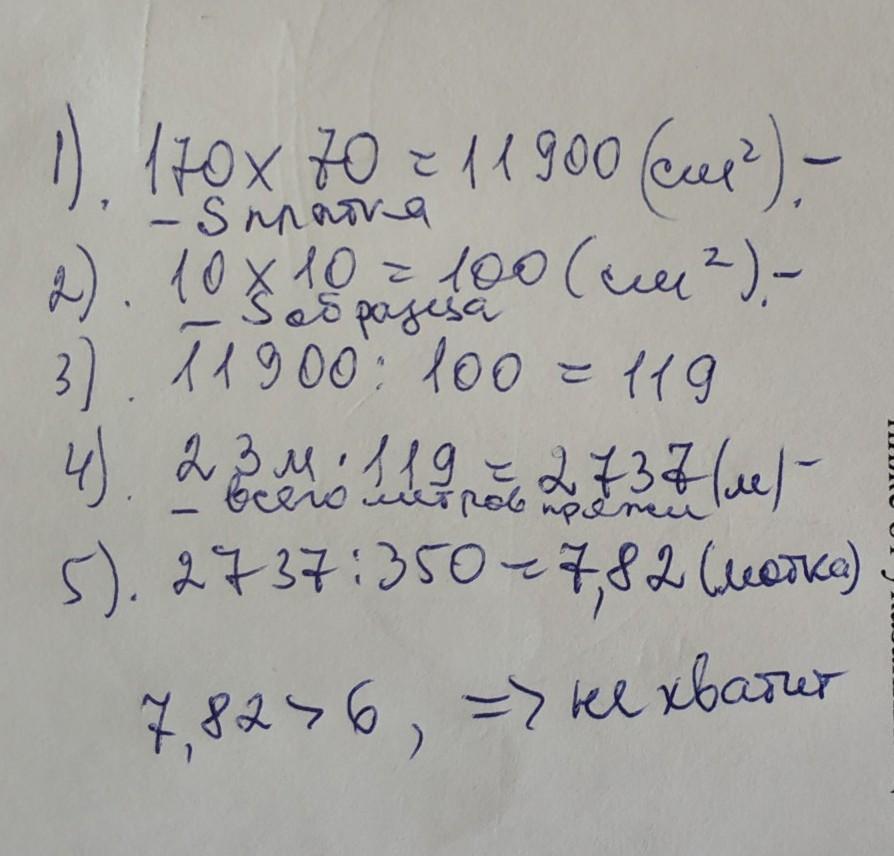 1). 170 x 70 = 11900 (см²).-
- S платка
2). 10 x 10 = 100 (см²).-
- S образца
3). 11900 : 100 = 119
4). 23м · 119 = 2737 (м) -
- всего метров пряжи
5). 2737 : 350 = 7,82 (мотка)
7,82 > 6, => не хватит